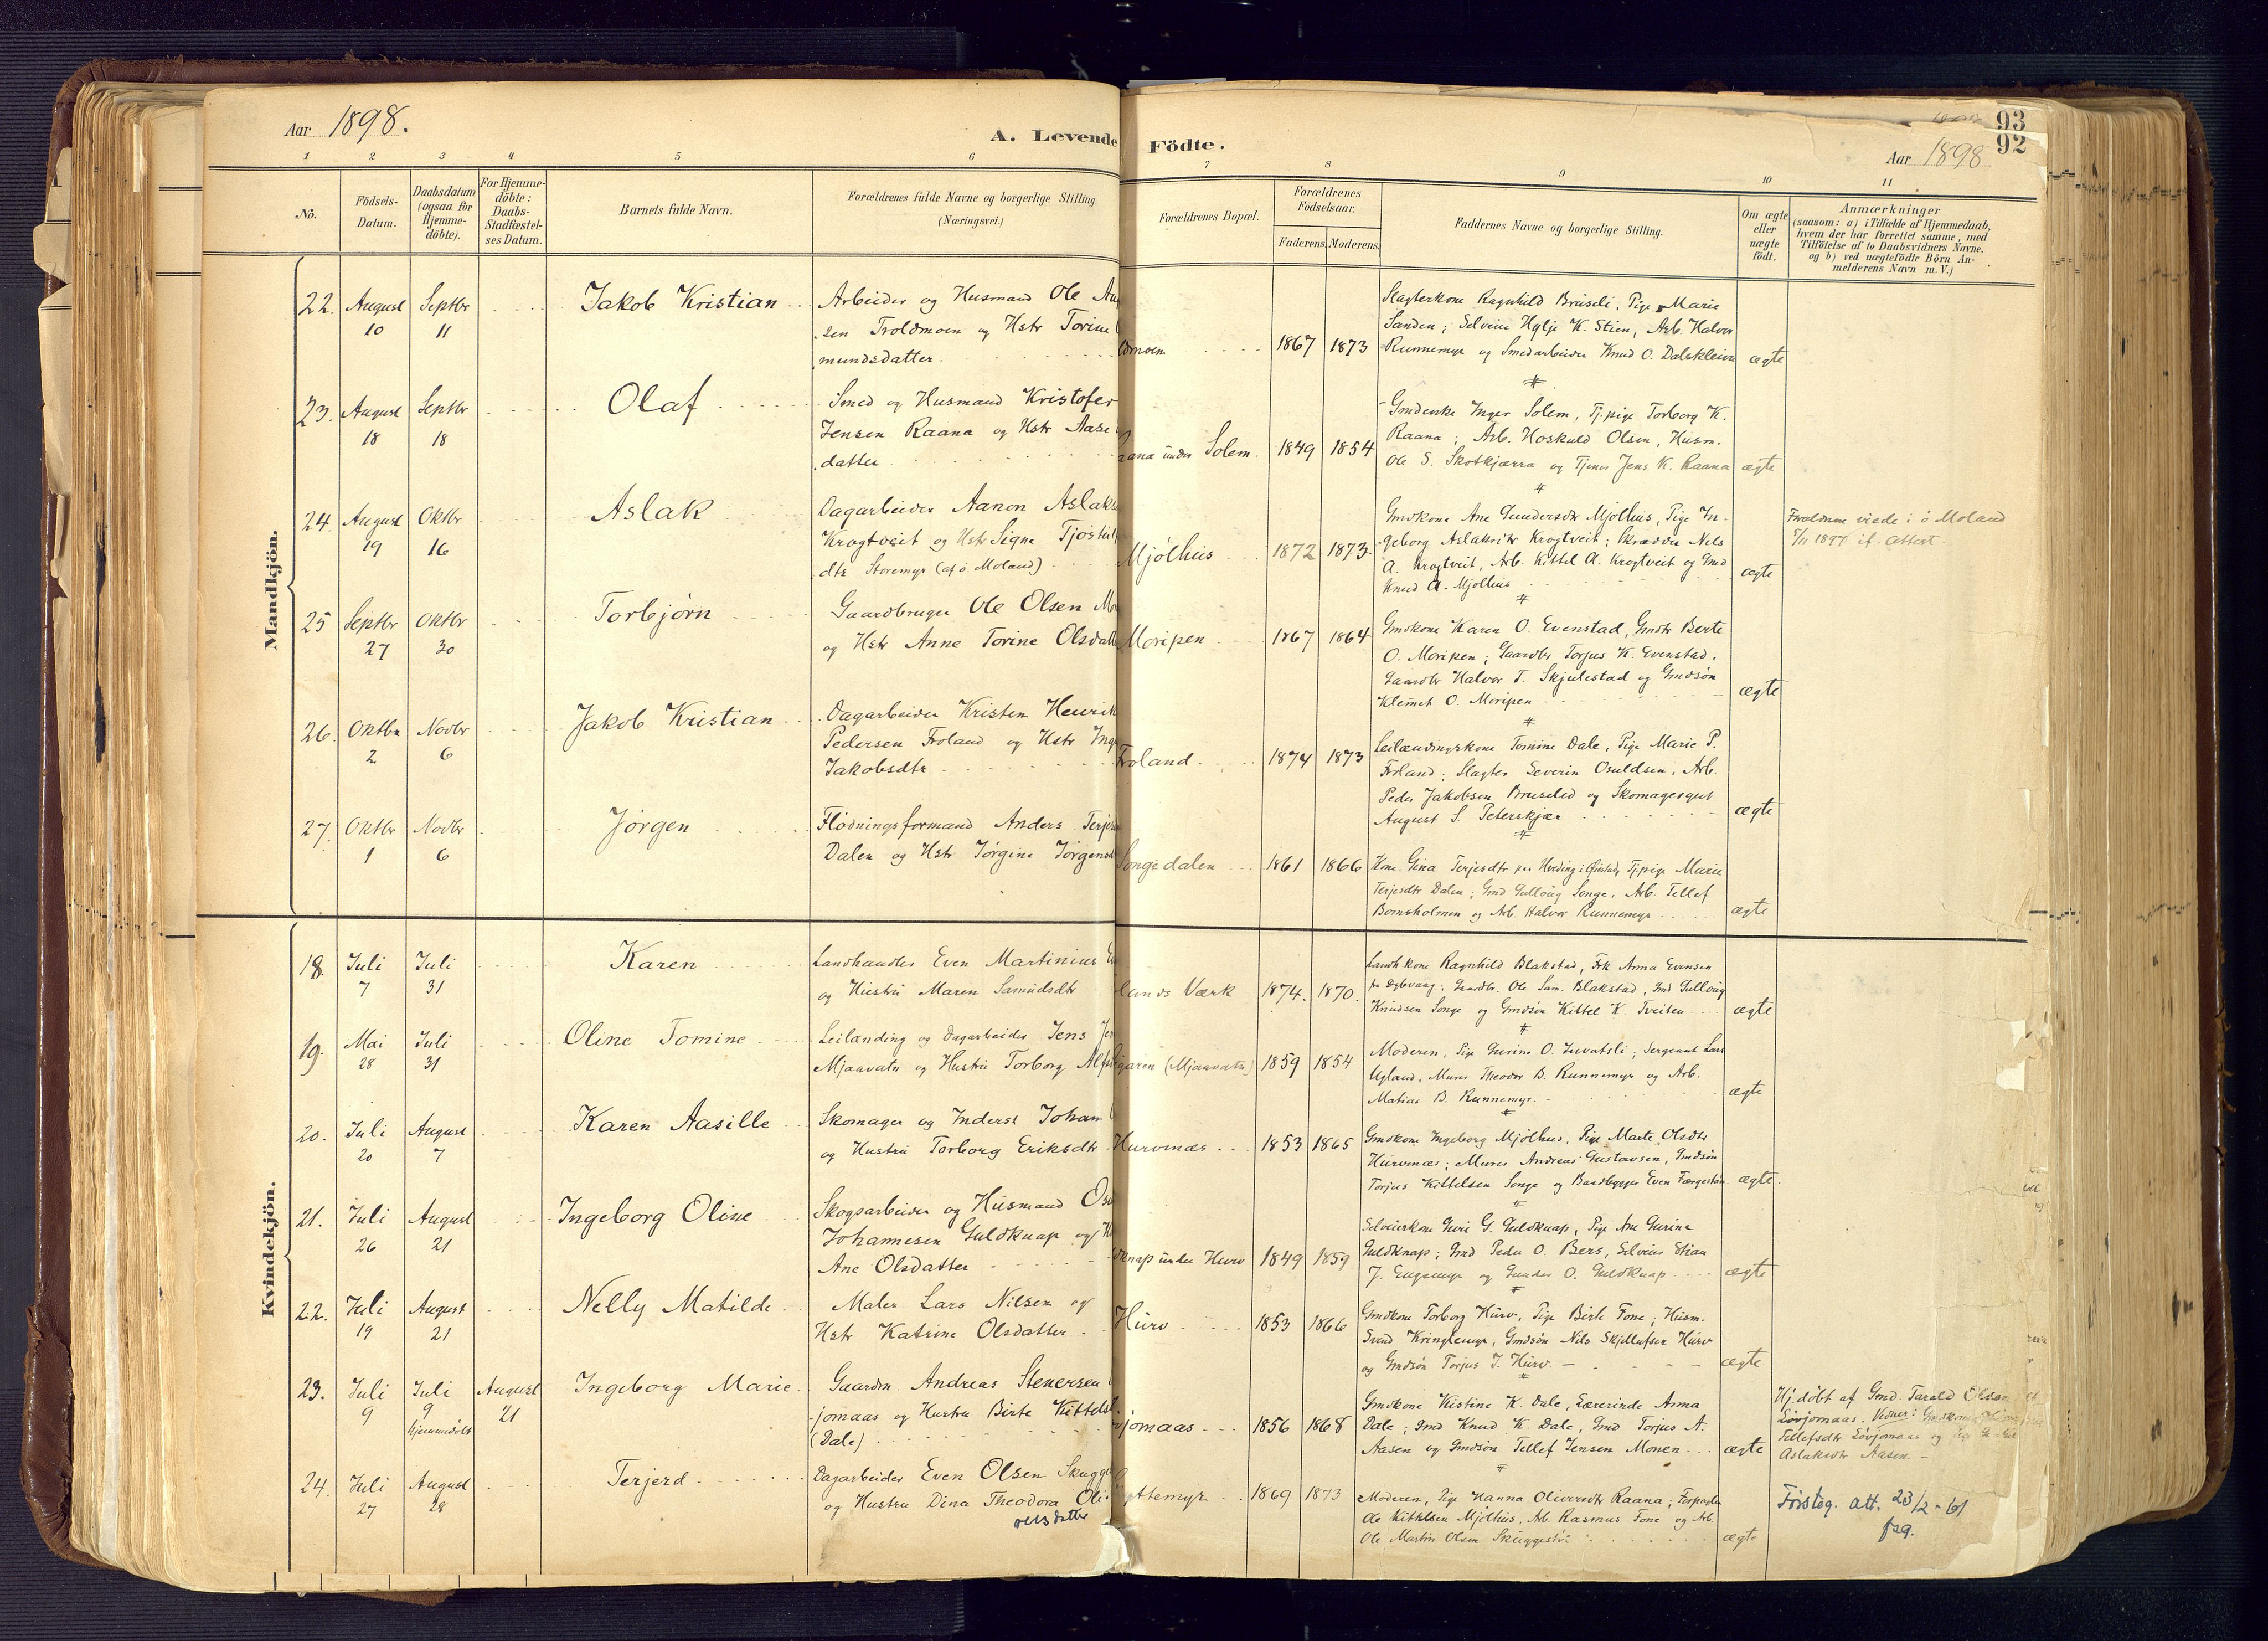 Aar 1898.
A. Levende Födte.
Aar 1898
93
92
1 2 3 4 5 6 7 8 9 10 11
No.
Födsels-Datum.
Daabsdatum (ogsaa for Hjemme-döbte).
For Hjemme-döbte: Daabs-Stadfæstel-ses Datum.
Barnets fulde Navn.
Forældrenes fulde Navne og borgerlige Stilling.
(Næringsvei.)
Forældrenes Bopæl.
Forældrenes Födselsaar.
Faderens. Moderens.
Faddernes Navne og borgerlige Stilling.
Om ægte eller uægte födt.
Anmærkninger
(saasom: a) i Tilfælde af Hjemmedaab,
hvem der har forrettet samme, med
Tilföielse af to Daabsvidners Navne,
og b) ved uægtefödte Börn An-
melderens Navn m. V.)
Mandkjön.
22. August 10 Septbr 11 Jakob Kristian
Arbeider og Husmand Ole
sen Troldmoen og Hstr Torine
mundsdatter.
1867 1873
Slagterkone Ragnhild Bruseli, Pige Marie
Sanden; Selveier Hylje K. Stien, Arb. Halvor
Runnemyr og Smedarbeider Knud O. Dalskleiva
ægte
23. August 18 Septbr 18 Olaf
Smed og Husmand Kristofer
Jensen Raana og Hstr Aase
datter
Raana under Solem. 1849 1854
Gmdenke Inger Solem, Tj.pige Torborg K.
Raana; Arb. Hoskuld Olsen, Husm.
Ole S. Skotkjærra og Tjener Jens K. Raana
ægte
24. August 19 Oktbr 16 Aslak
Dagarbeider Aanon Aslaks
Krogtveit og Hstr Signe Tjostul
dtr Storemyr (af ø. Moland)
Mjølhus 1872 1873
Gmdkone Ane Gundersdtr Mjølhus, Pige In-
geborg Aslaksdtr Krogtveit; Skrædder Nils
A. Krogtveit, Arb. Kittel A. Krogtveit og Gmd
Knud A. Mjølhus
ægte
Forældrene viede i ø Moland
5/11 1897 if. attest.
25 Septbr 27 Oktbr 30 Torbjørn
Gaardbruger Ole Olsen Mo
og Hstr Anne Torine Olsdatt
Moripen 1867 1864
Gmdkone Karen O. Evenstad, Gmdtr Berte
O. Moripen; Gaardbr Torjus K. Evenstad,
Gaardbr Halvor T. Skjulestad og Gmdsøn
Klemet O. Moripen
ægte
26. Oktbr 2 Novbr 6 Jakob Kristian
Dagarbeider Kristen Henrik
Pedersen Froland og Hstr Inge
Jakobsdtr
Froland 1874 1873
Leilændingskone Tomine Dale, Pige Marie P.
Froland; Slagter Severin Osuldsen, Arb.
Peder Jakobsen Bruselid og Skomagergut
August S. Peterskjær
ægte
27. Oktbr 1 Novbr 6 Jørgen
Flødningsformand Anders Terjes
Dalen og Hstr Jørgine Jørgensd
Songedalen 1861 1866
Kone Gina Terjesdtr Tjpige Marie
Terjesdtr Dalen; Gmd Gulloug Songe, Arb. Tellef
Bomsholmen og Arb. Halvor Runnemyr
ægte
Kvindekjön.
18. Juli 7 Juli 31 Karen
Landhandler Even Martinius
og Hustru Maren Samuelsdtr
lands Værk 1874. 1870.
Landh.kone Ragnhild Blakstad, Frk Anna Evensen
fra Dybvaag; Gaardbr. Ole Sam. Blakstad, Gmd Gulloug
Knudsen Songe og Gmdsøn Kittel K. Tveiten
ægte
19. Mai 28 Juli 31 Oline Tomine
Leilænding og Dagarbeider Jens
Mjaavatn og Hustru Torborg Alf
(Mjaavatn) 1859 1854
Moderen, Pige Gurine O. ; Sergeant Lars
Ugland, Murer Theodor B. Runnemyr og Arb.
Matias B. Runnemyr.
ægte
20. Juli 20 August 7 Karen Aasille
Skomager og Inderst Johan
og Hustru Torborg Eriksdtr
Hurvenæs 1853 1865
Gmdkone Ingeborg Mjølhus, Pige Marte Olsdtr
Hurvenæs; Murer Andreas Gustavsen, Gmdsøn
Torjus Kittelsen Songe og Baadbygger Even Færgestøn
ægte.
21. Juli 26 August 21 Ingeborg Oline
Skogsarbeider og Husmand
Johannesen Guldknap og
Ane Olsdatter
knap under Hurv 1849 1859
Selveierkone Guri G. Guldknap, Pige Ane Gurine
Guldknap; Gmd Peder O. Bers, Selveier Stian
J. Engemyr og Gunder O. Guldknap
ægte
22. Juli 19 August 21 Nelly Matilde
Maler Lars Nilsen og
Hstr Katrine Olsdatter
Hurv 1853 1866
Gmdkone Torborg Hurv, Pige Birte Fone; Husm.
Svend Kringlemyr, Gmdsøn Nils Skjellufsen Hurv
og Gmdsøn Torjus J. Hurv.
ægte
23. Juli 9 Juli 9 hjemmedøbt August 21 Ingeborg Marie.
Gaardm. Andreas Stenersen
jomaas og Hustru Birte Kittels
(Dale)
jomaas 1856 1868
Gmdkone Kistine K. Dale, Lærerinde Anna
Dale; Gmd Knud K. Dale, Gmd Torjus A.
Aasen og Gmdsøn Tellef Jensen Monen
ægte
Hj.døbt af Gmd. Tarald
Løvjomaas. Vidner: Gmdkone
Tellefsdtr Løvjomaas og
Aslaksdtr Aasen.
24. Juli 27 August 28 Terjerd
Dagarbeider Even Olsen Skugge
og Hustru Dina Theodora Oli-
versdatter
1869 1873
Moderen, Pige Hanna Oliversdtr Raana; Forpagter
Ole Kittelsen Mjølhus, Arb. Rasmus Fone og Arb.
Ole Martin Olsen Skuggestøl
ægte
Førsteg. att. 23/2-61